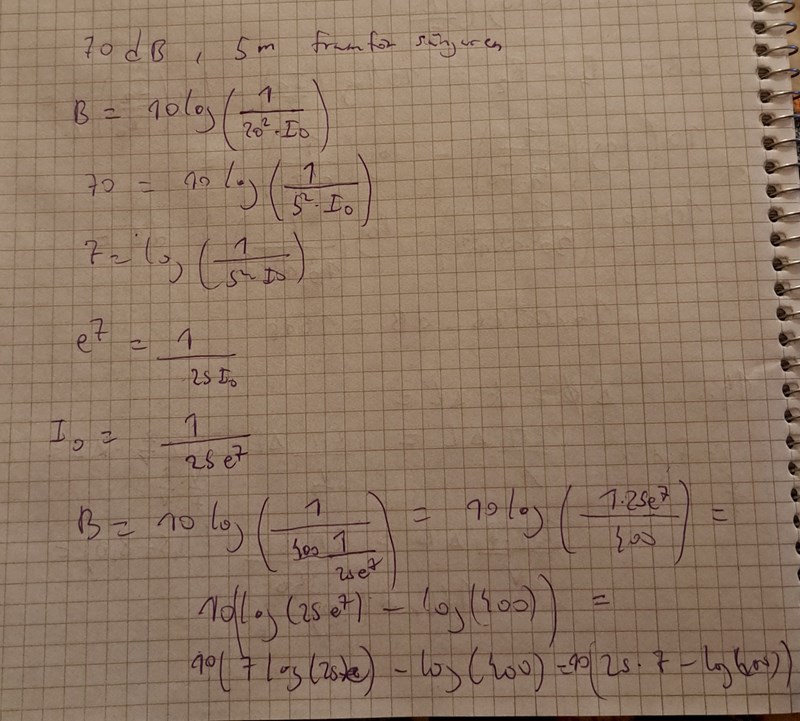 70 dB , 5m framför sångaren
B = 10 log(1/(20²·I₀))
70 = 10 log(1/(5²·I₀))
7 = log(1/(5²·I₀))
e⁷ = 1/(25 I₀)
I₀ = 1/(25e⁷)
B = 10 log(1/(400 1/(25e⁷))) = 10 log(1·25e⁷/400) =
10(log(25e⁷) - log(400)) =
10(7 log(25e) - log(400) = 10(25·7 - log(400))